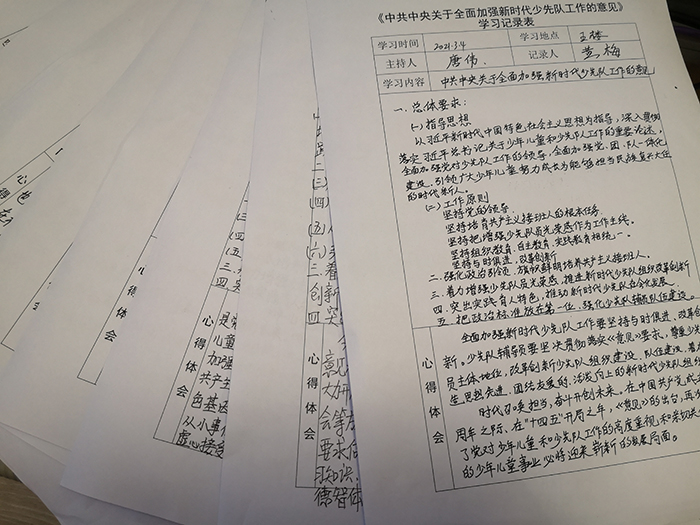 《中共中央关于全面加强新时代少先队工作的意见》
学习记录表
学习时间 2021.3.4 学习地点 五楼
主持人 唐伟. 记录人 黄梅
学习内容 中共中央关于全面加强新时代少先队工作的意见
一. 总体要求:
(一)指导思想
以习近平新时代中国特色社会主义思想为指导,深入贯彻
落实习近平总书记关于少年儿童和少先队工作的重要论述,
全面加强党对少先队工作的领导,全面加强党、团、队一体化
建设,引领广大少年儿童努力成长为能够担当民族复兴大任
的时代新人。
(二)工作原则
坚持党的领导
坚持培育共产主义接班人的根本任务
坚持把增强少先队员光荣感作为工作主线。
坚持组织教育、自主教育、实践教育相统一。
坚持与时俱进、改革创新
二. 强化政治引领,旗帜鲜明培养共产主义接班人。
三. 着力增强少先队员光荣感,推进新时代少先队组织改革创新
四. 突出实践育人特色,推动新时代少先队社会化发展.
五. 把政治标准放在第一位,强化少先队辅导队伍建设。
心得体会
全面加强新时代少先队工作要坚持与时俱进、改革创
新。少先队辅导员要坚决贯彻落实《意见》要求,尊重少先队
员主体地位,改革创新少先队组织建设、队伍建设,着力
生思想先进、团结友爱的、活泼向上的新时代少先队组织
时代召唤担当,奋斗开创未来。在中国共产党成立
周年之际、在"十四五"开局之年,《意见》的出台,再次
了党对少年儿童和少先队工作的高度重视和亲切关
的少年儿童事业必将迎来崭新的发展局面。
(三)
(四)
(五)
(六)
三
创新
四
心得体会
大开
会等
要求
习知识
德智体
心得体会
儿童
加强
共产主
色基因
从小事
虚心接受
心得体会
心得体会
心得